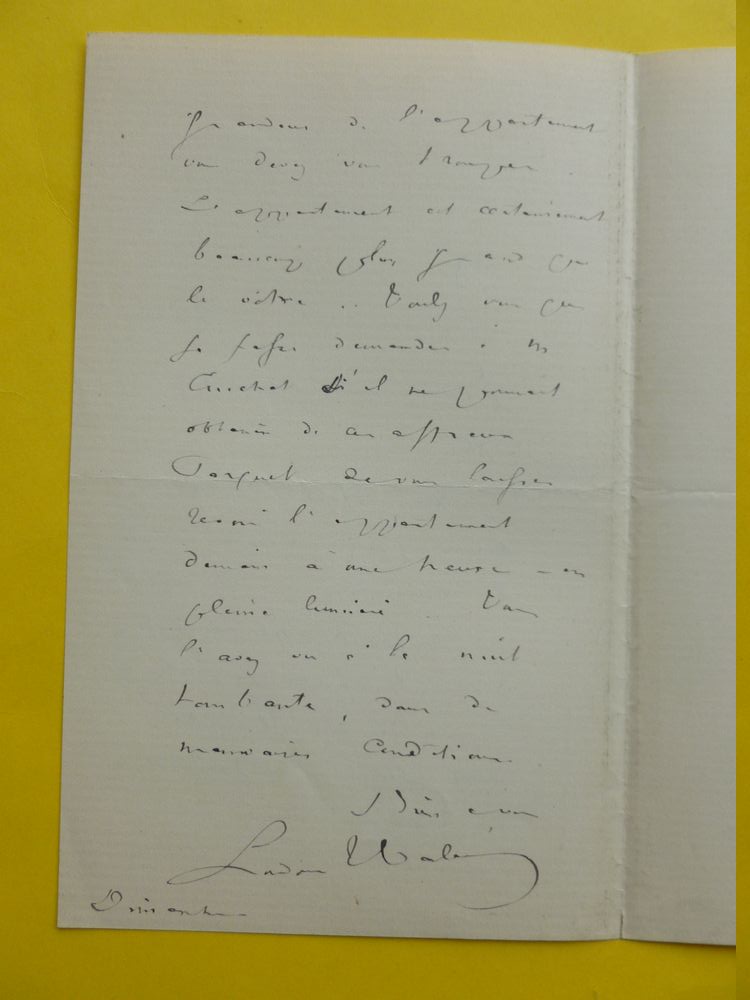 grandeur de l'appartement
vous devez vous tromper.
L'appartement est certainement
beaucoup plus grand que
le vôtre .. Voulez vous que
je fasse demander à M
Guichat s'il ne pourrait
obtenir de cet affreux
Parquet de vous laisser
revoir l'appartement
demain à une heure - en
pleine lumière. Vous
l'avez vu à la nuit
tombante, dans de
mauvaises conditions.
à vous
Ludovic Halévy
Dimanche